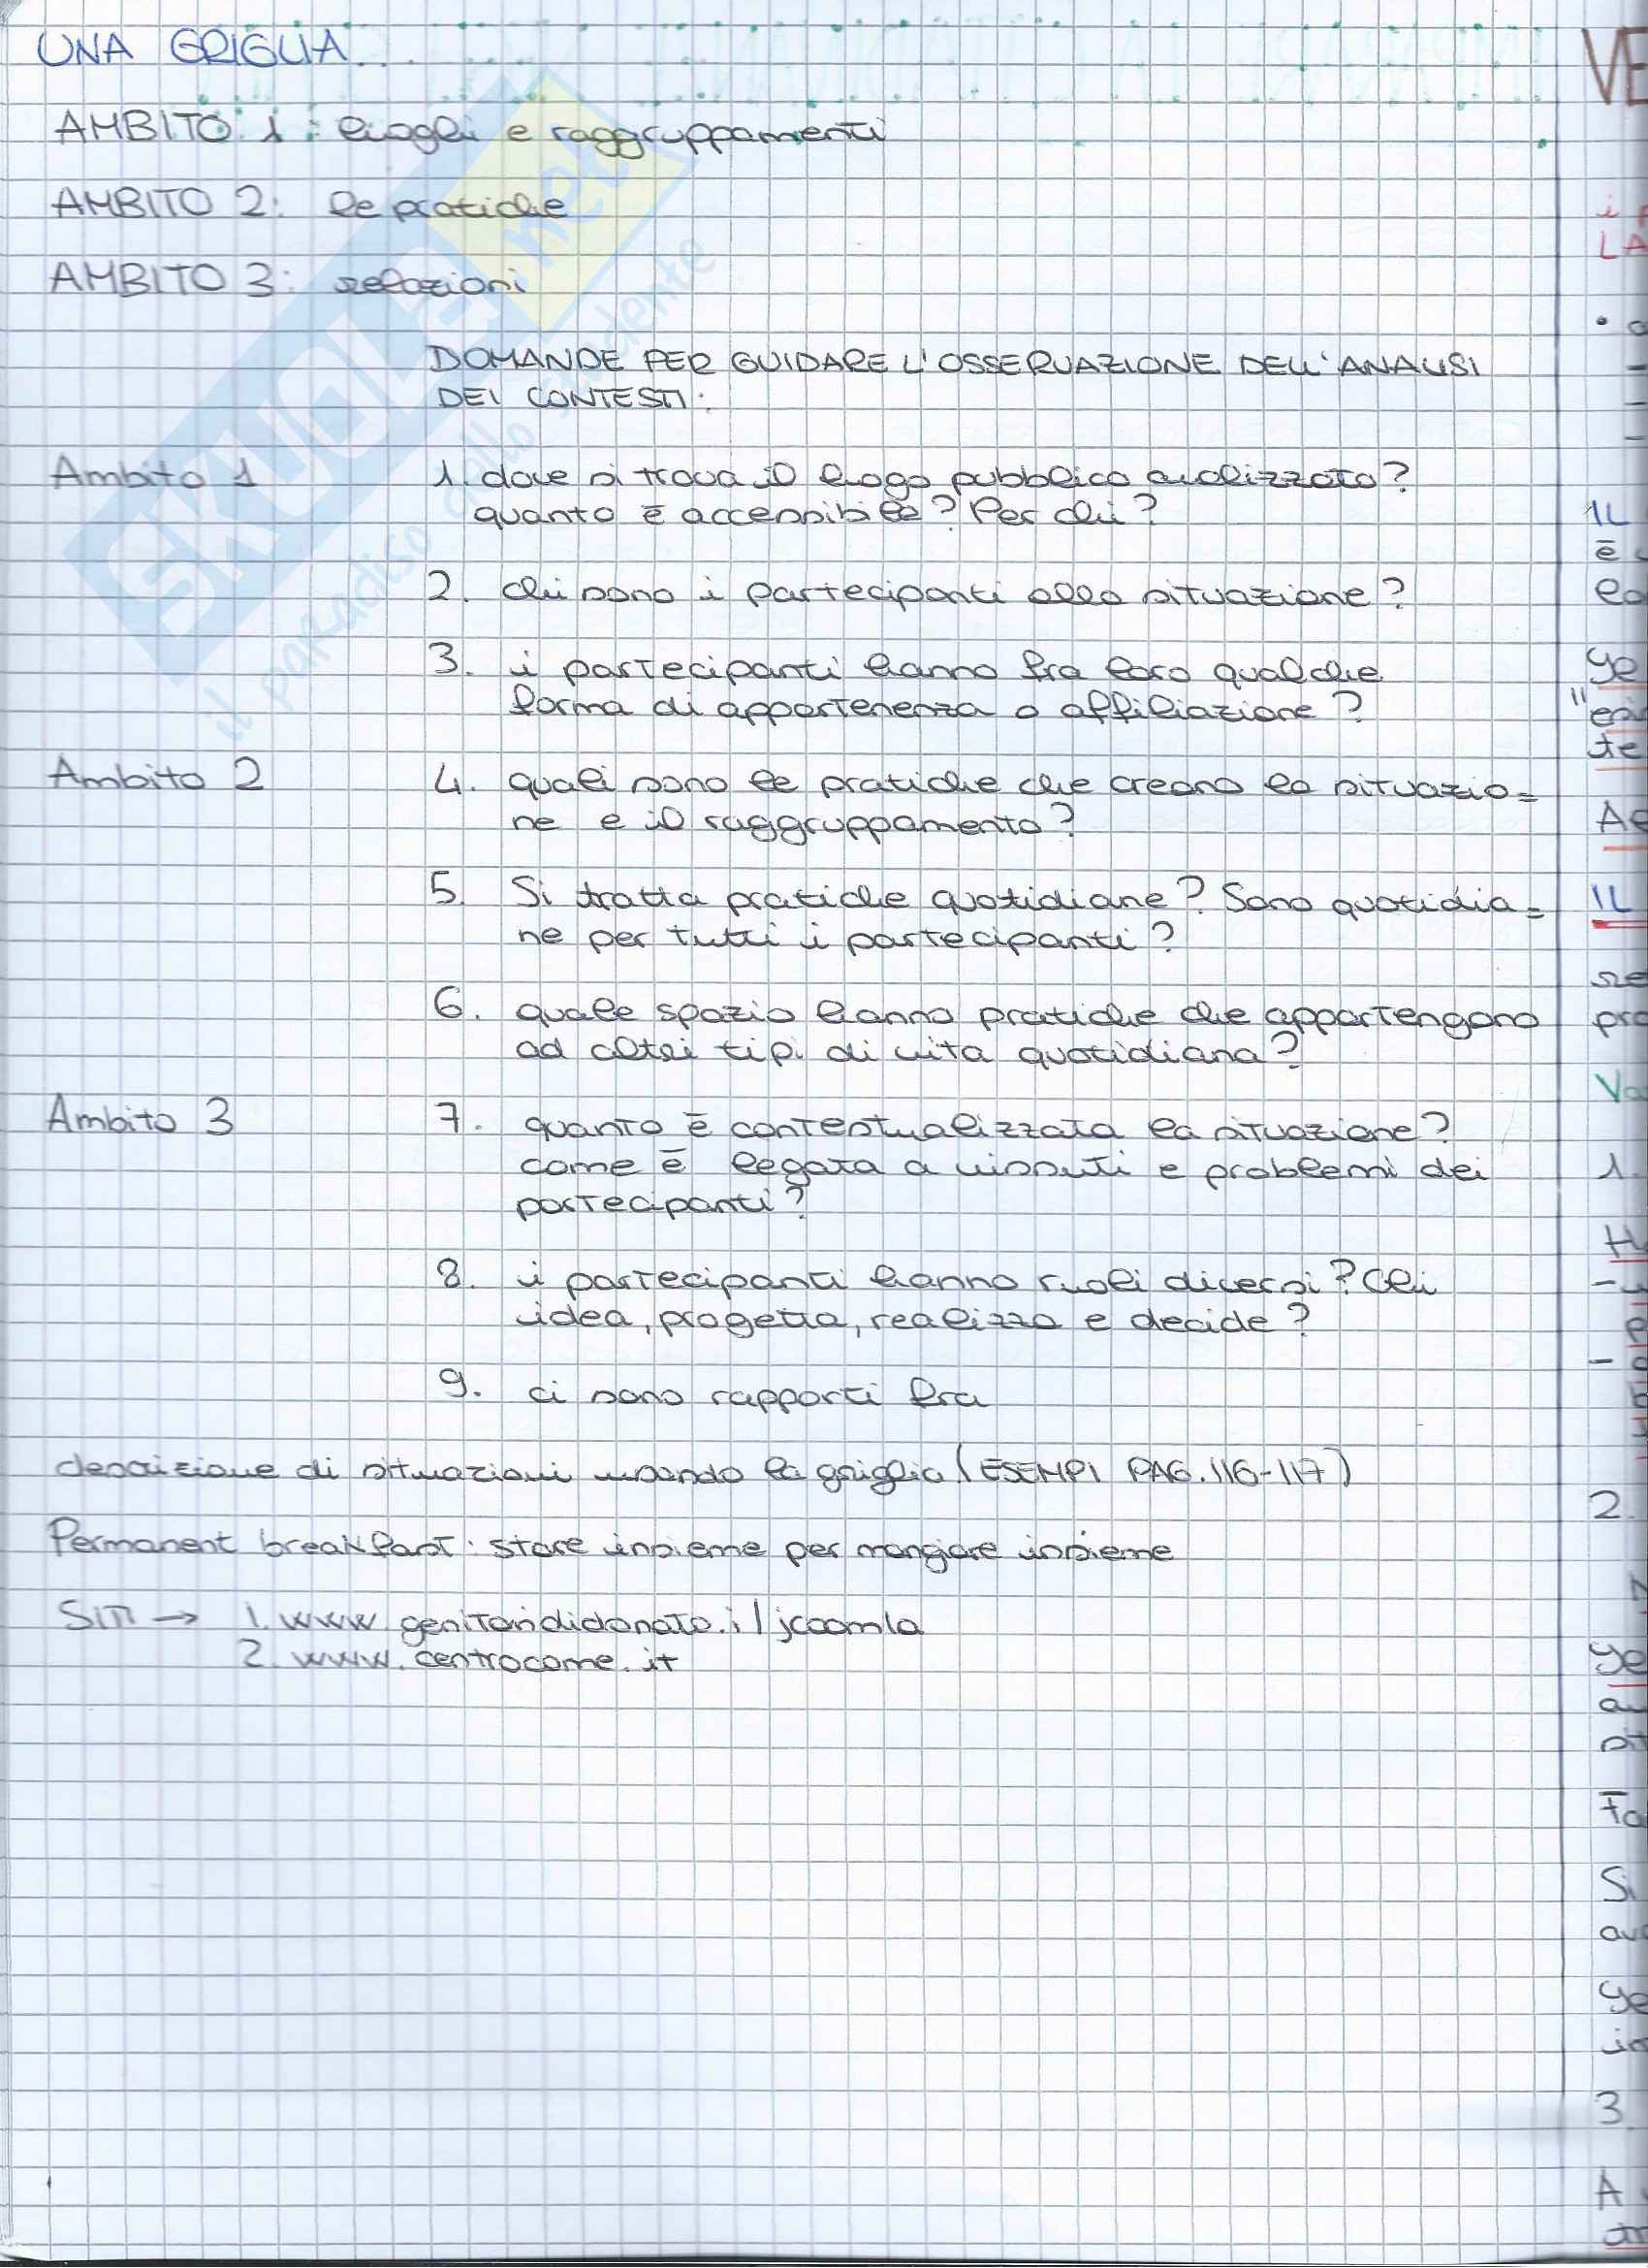 UNA GRIGLIA...
AMBITO 1: luoghi e raggruppamenti
AMBITO 2: le pratiche
AMBITO 3: relazioni
DOMANDE PER GUIDARE L'OSSERVAZIONE DELL'ANALISI
DEI CONTESTI:
Ambito 1
1. dove si trova il luogo pubblico analizzato?
quanto è accessibile? Per chi?
2. chi sono i partecipanti alla situazione?
3. i partecipanti hanno fra loro qualche
forma di appartenenza o affiliazione?
Ambito 2
4. quali sono le pratiche che creano la situazio=
ne e il raggruppamento?
5. Si tratta pratiche quotidiane? Sono quotidia=
ne per tutti i partecipanti?
6. quale spazio hanno pratiche che appartengono
ad altri tipi di vita quotidiana?
Ambito 3
7. quanto è contestualizzata la situazione?
come è legata a vissuti e problemi dei
partecipanti?
8. i partecipanti hanno ruoli diversi? Chi
idea, progetta, realizza e decide?
9. ci sono rapporti fra
descrizione di situazioni usando la griglia (ESEMPI PAG. 116-117)
Permanent breakfast: stare insieme per mangiare insieme
SITI → 1. www.genitorididonato.i/joomla
2. www.centrocome.it
SKUOLA.net
il paradiso dello studente
VE
LA
IL
è
ge
te
IL
pro
Va
1.
2.
ge
Si
ge
3.
A